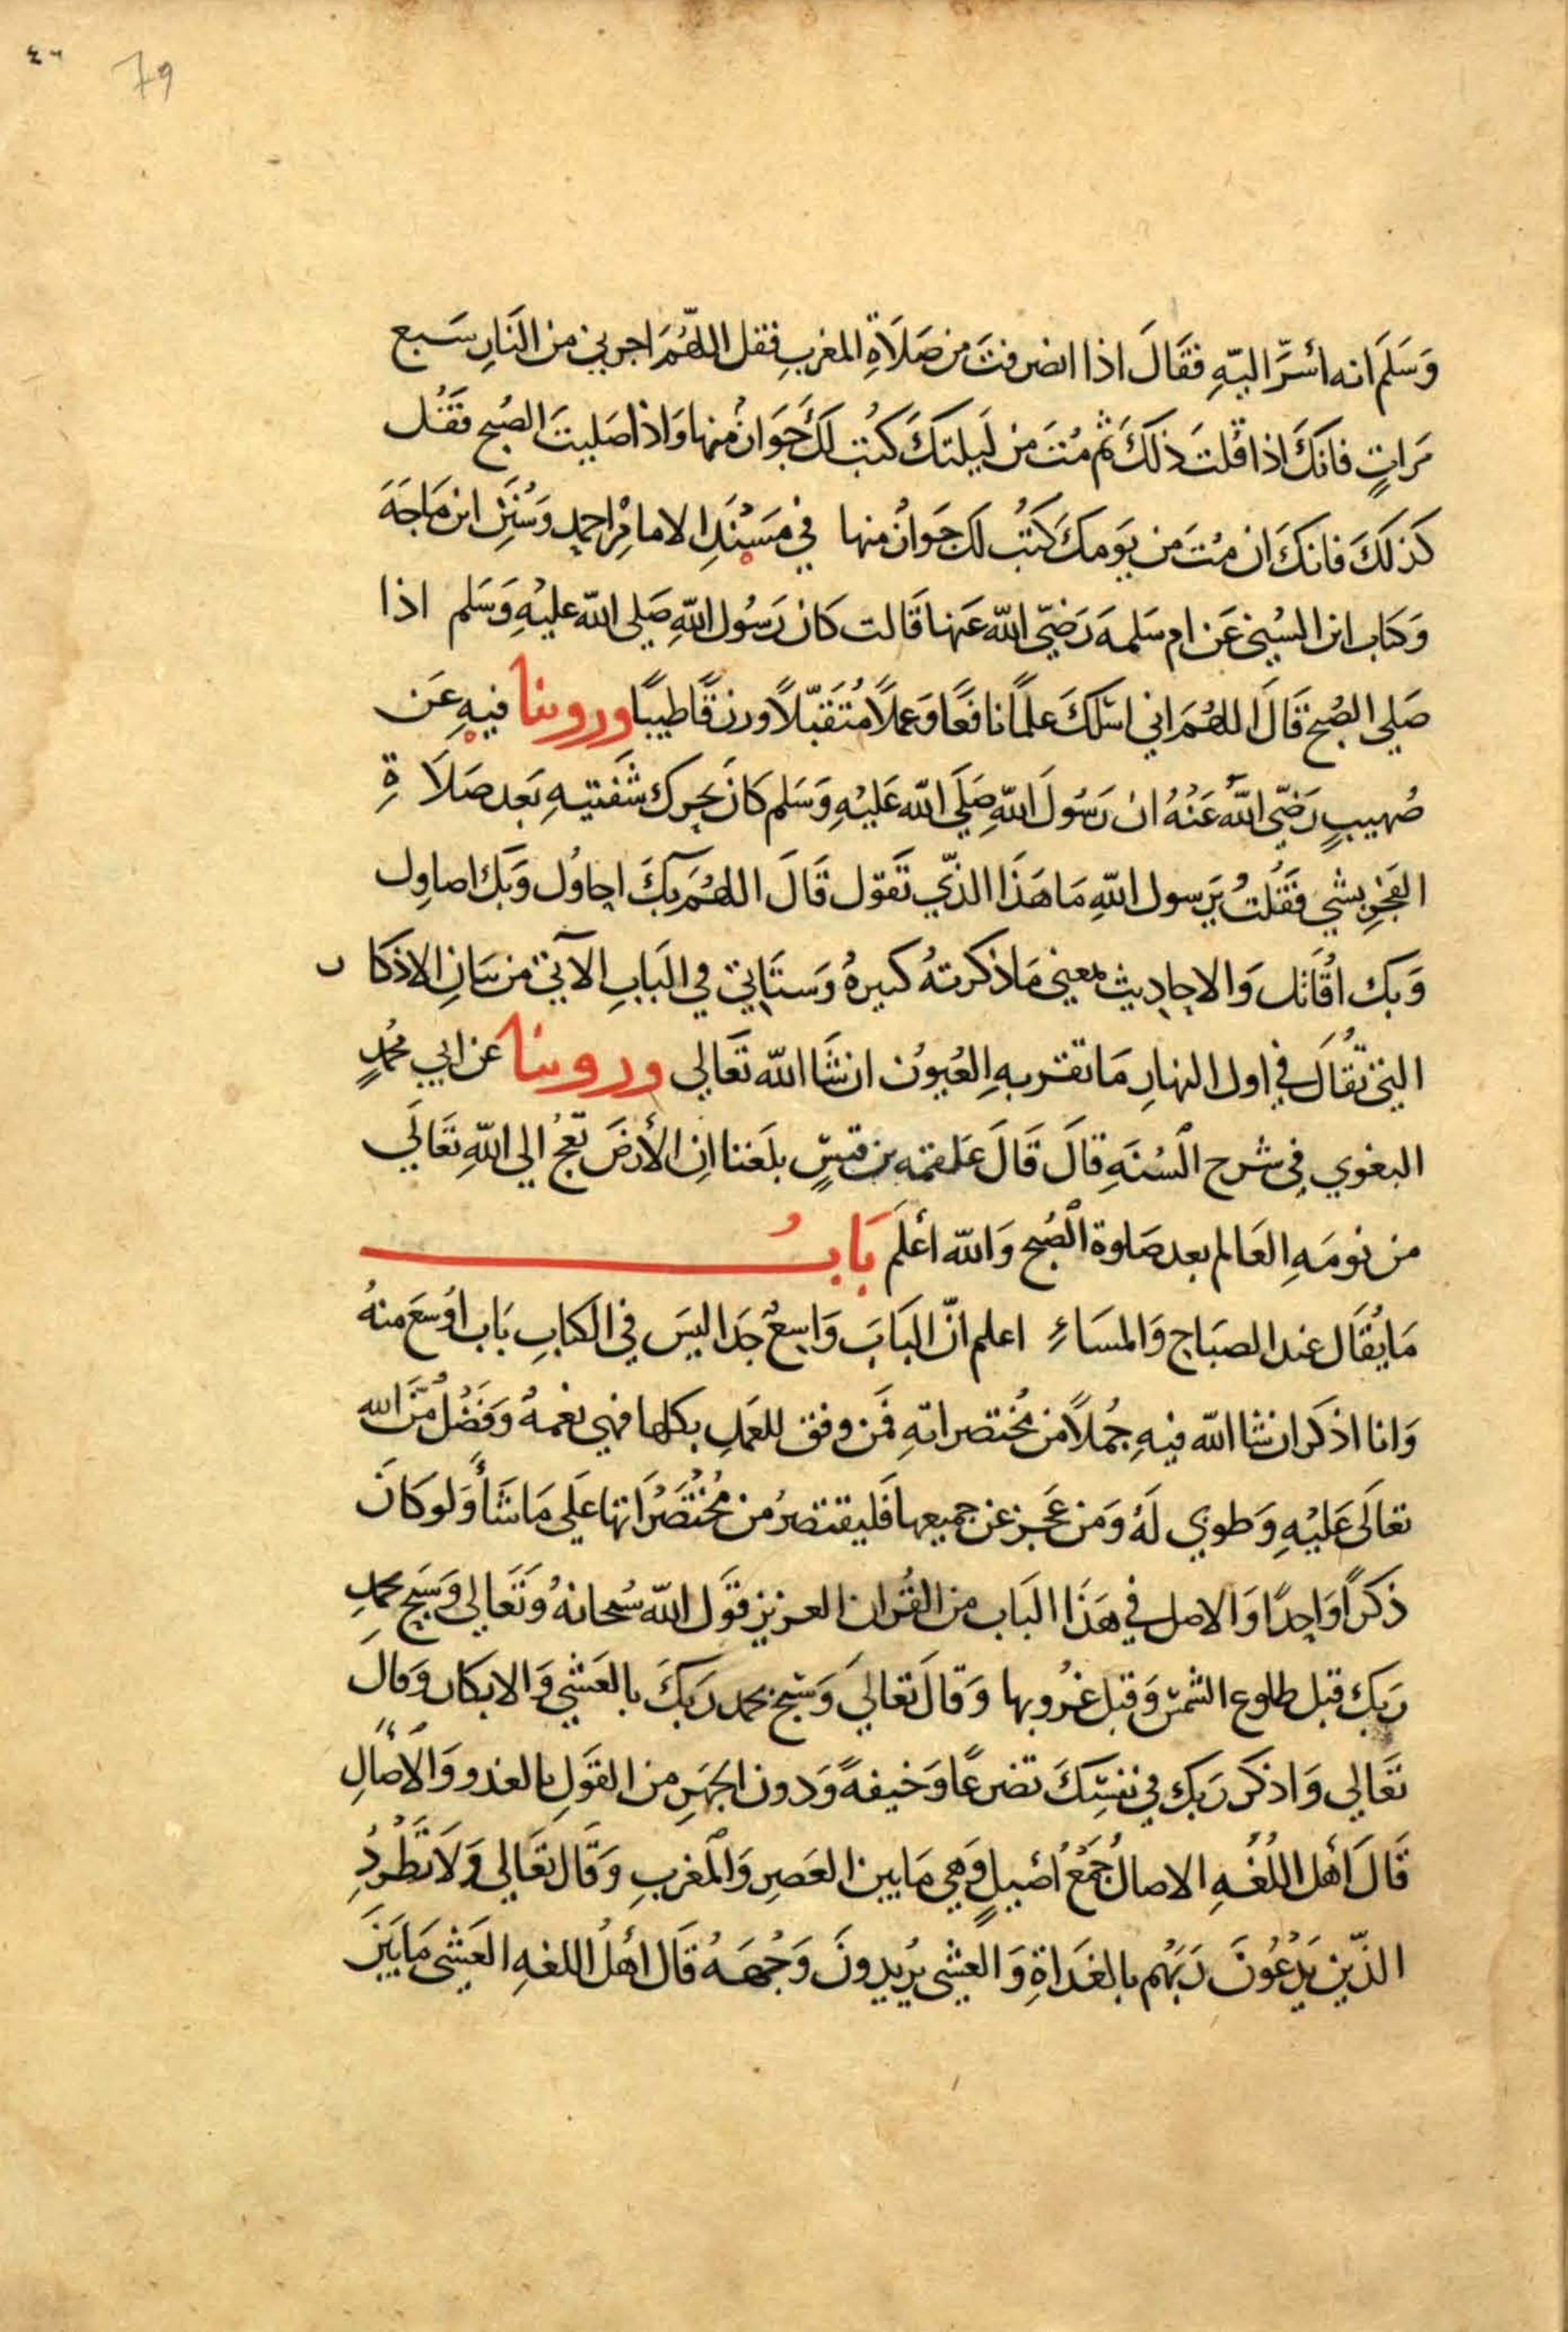 ٤٦ 79
وَسَلَمَ انه أسَرَّ اليّهِ فقَالَ اذا انصرفتَ من صَلَاةِ المغربِ فقل اللهُمَ اجرني من النَارِ سَبع
مَراتٍ فانكَ اذا قلتَ ذلكَ ثم مُتَ من لَيلتكَ كتُب لكَ جَوَازُ منها وَاذا صَليتَ الصُبح فقَل
كذلكَ فانكَ ان مُتَ من يَومكَ كتُب لكَ جَوازُ منها في مَسْنَدِ الامامِ احمد وَسُنَنِ ابن مَاجَهَ
وَكتاب ابن السُني عَن ام سَلمهَ رَضيّ اللهّ عَنها قَالت كانَ رَسُول اللهِ صَلي اللهّ عليْهِ وَسَلم اذا
صَلي الصُبح قَالَ اللهُمَ اني اسٔلكَ علمًا نافعًا وَعملًا مُتَقبّلًا ورزقًا طيبًا وروينا فيهِ عَن
صُهيبٍ رَضيّ اللهُّ عَنْهُ انَ رَسُولَ اللهِّ صَلَي اللهّ عَليْهِ وَسَلم كانَ يحرك شَفتيهِ بَعد صَلَا ةِ
الفَجرِ بشيٍ فقَلتُ يَرسول اللهِّ مَا هَذَا الذّي تَقوّل قَالَ اللهُمَ بكَ احاوُل وَبكَ اصاوِل
وَبك اقَاتل وَالاحاديث بمعني مَا ذكرتهُ كثيرهُ وَستَاتي في البَابِ الآتي من بيَانِ الاذكا ر
التي تقَال في اول النهارِ مَا تقر بهِ العُيوُن ان شَا اللهّ تَعَالي وروينا عن ابي محُمدٍ
البغوي في شرح السُنَهِ قالَ قَالَ عَلقمَه بن قيسٍّ بلَغنا اِن الأرضَ تعَجُ الي اللهِّ تعَالَي
من نومَهِ العَالم بعد صَلوة الصُبح وَاللهّ أعلَم بَابُ
مَا يُقَال عند الصبَاح وَالمسَاءِ اعلم انّ البَابَ وَاسِعُ جَدا ليسَ في الكتابِ بَاب اوَسَع منهُ
وَانا اذكر ان شا اللهّ فيهِ جُملًا من مُختصراتهِ فمَن وفق للعَملِ بكلها فهي نعَمهُ وَفَضُلُ مّنَ الله
تعالَى عَليْهِ وَطوبي لَهُ وَمَن عَجَز عن جميعها فَليقتصرُ من مُختَصَراتها علَي مَا شَأ وَلو كانَ
ذكرًا وَاحِدًا وَالاصل في هَذَا البَاب من القُران العزيز قوَل اللهّ سُبحانهُ وَتَعَالي وَسَبح بحمدِ
رَبك قبل طلوع الشمسّ وَقبل غرُوبها وَقالَ تعَالَي وَسَبّح بحمد رَبكَ بالعَشي وَالابكار وَقالَ
تعَالي وَاذكر رَبك في نفسِّكَ تضرعًا وَخيفهً وَدون الجهَرِ من القوَلِ بالغدو وَالأصَالِ
قَالَ أهل اللغُهِ الاصالُ جَمَعُ أصَيلٍ وَهي مَا بين العَصرِ وَالمغربِ وَقَال تعَالي وَلَا تَطُردُ
الذّين يَدْعُونَ رَبَهُم بالغدَاةِ وَ العشي يرُيدونَ وَجُههُ قَال أهلُ اللغهِ العَشى مَا بَينَ